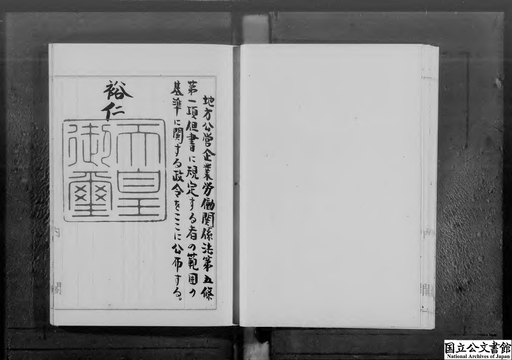 地方公営企業労働関係法第五條
第一項但書に規定する者の範囲の
基準に関する政令をここに公布する。
裕仁
天皇
御璽
国立公文書館
National Archives of Japan